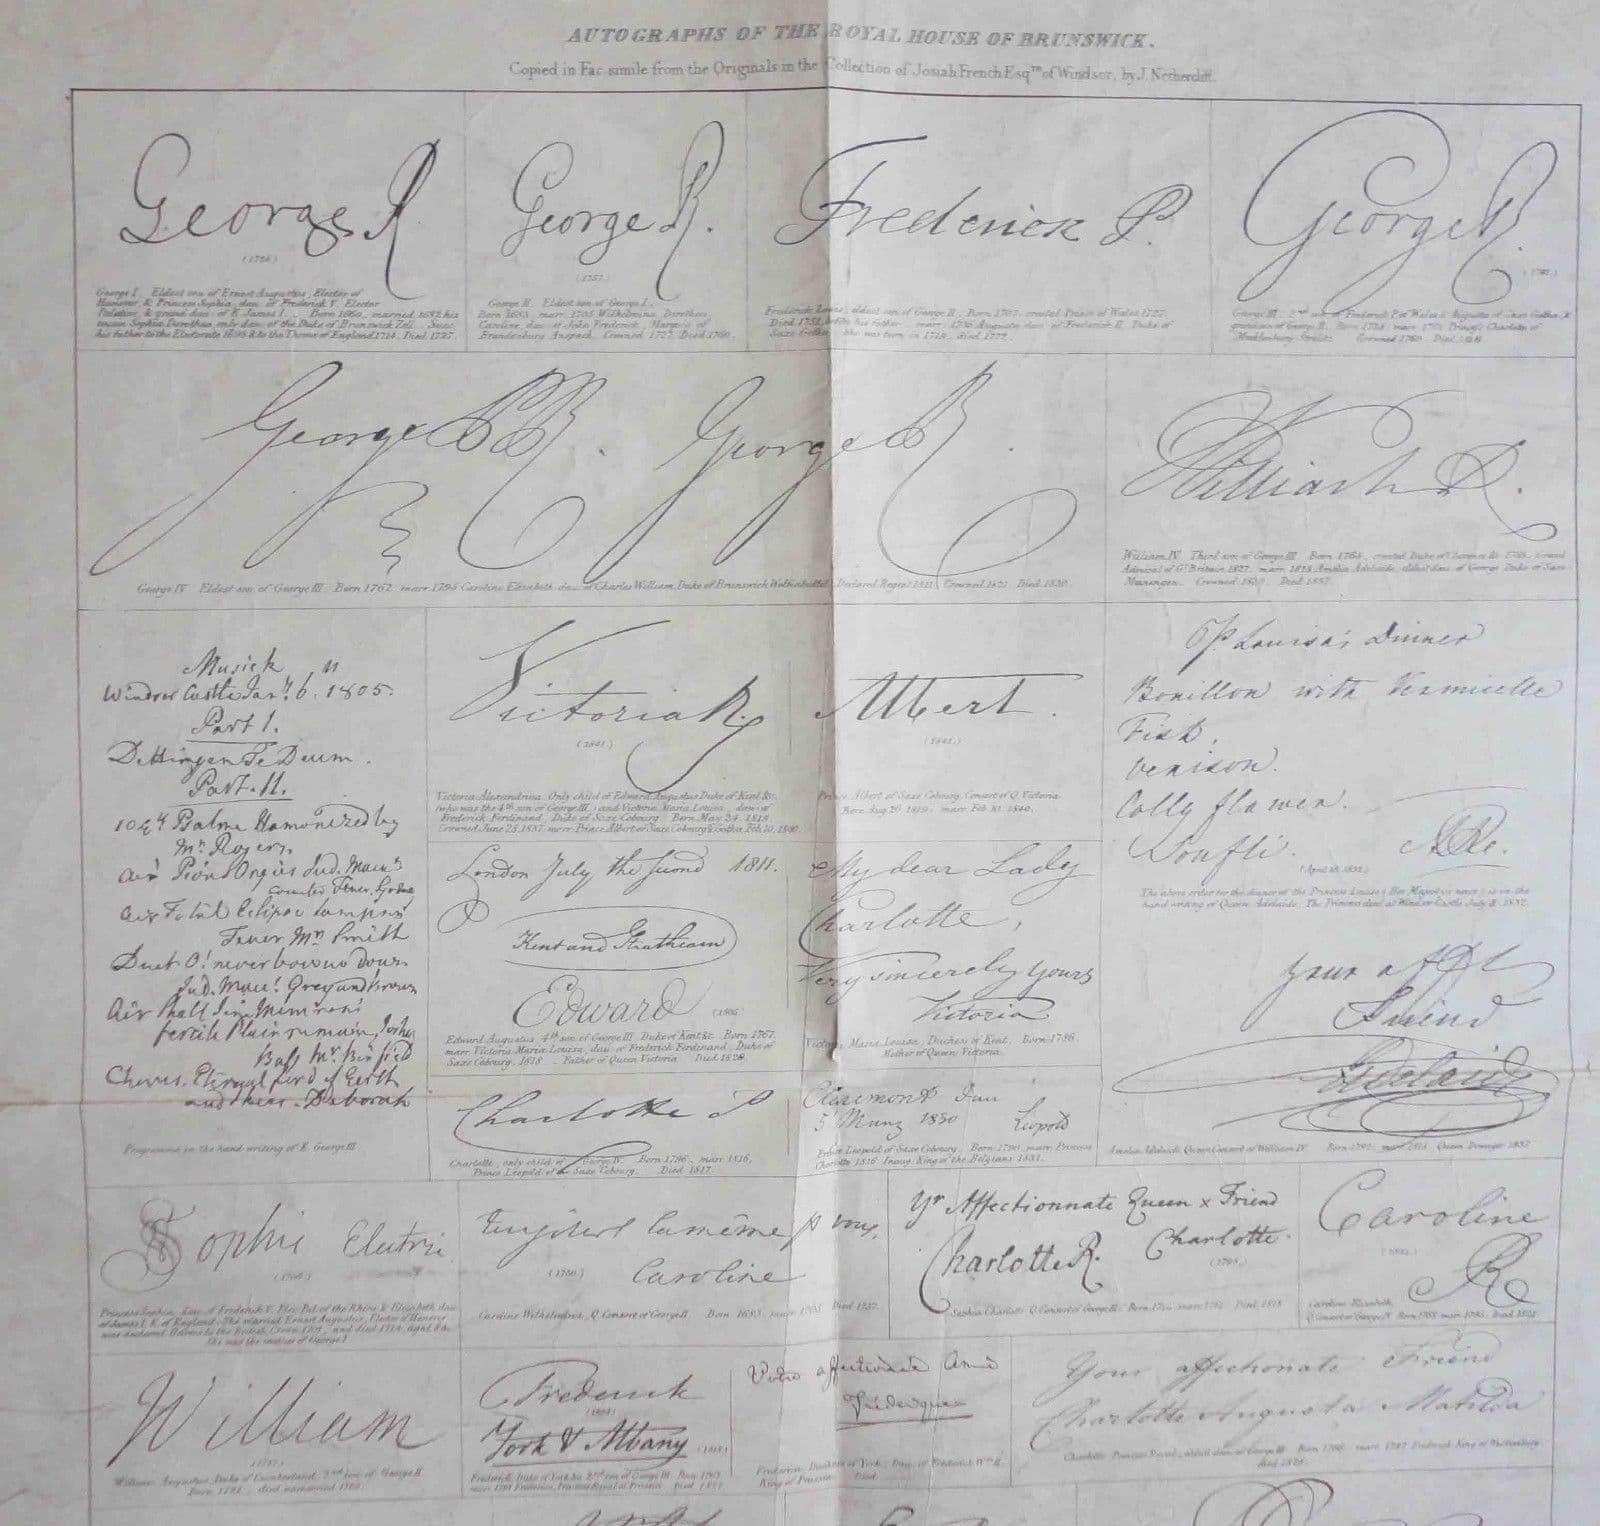 AUTOGRAPHS OF THE ROYAL HOUSE OF BRUNSWICK.
Copied in Fac simile from the Originals in the Collection of Josiah French Esqre. of Windsor, by J. Netherclift.
George R
(1726)
George I. Eldest son of Ernest Augustus, Elector of
Hanover, & Princess Sophia, dau. of Frederick V. Elector
Palatine, & grand dau. of K. James I. Born 1660, married 1682 his
cousin Sophia Dorothea, only dau. of the Duke of Brunswick Zell. Succ.
his father to the Electorate 1698 & to the Throne of England 1714. Died 1727.
George R.
(1757)
George II. Eldest son of George I.
Born 1683. marr. 1705 Wilhelmina Dorothea
Caroline dau. of John Frederick, Marquis of
Brandenburg Anspach. Crowned 1727. Died 1760.
Frederick P.
Frederick Louis, eldest son of George II. Born 1707. created Prince of Wales 1727.
Died 1751, before his father. marr. 1736 Augusta dau. of Frederick II. Duke of
Saxe Gotha. She was born in 1719. died 1772.
George R.
George III. 2nd son of Frederick P. of Wales & Augusta of Saxe Gotha, &
grandson of George II. Born 1738. marr. 1761 Princess Charlotte of
Mecklenburg Strelitz. Crowned 1760. Died 1820.
George P R. George R.
George IV. Eldest son of George III. Born 1762. marr. 1795 Caroline Elizabeth dau. of Charles William, Duke of Brunswick Wolfenbuttel. Declared Regent 1811. Crowned 1821. Died 1830.
William R.
William IV. Third son of George III. Born 1765. created Duke of Clarence &c 1789. Grand
Admiral of Gt. Britain 1827. marr. 1818 Amelia Adelaide, eldest dau. of George Duke of Saxe
Meiningen. Crowned Died 1837.
Musick
Windsor Castle Jany. 6. 1805.
Part I.
Dettingen Te Deum.
Part. II.
104th Psalm Harmonized by
Mr. Rogers.
Air Pious Orgies Jud. Macc
Air Total Eclipse Samson
Tenor Mr. Smith
Duet O! never bow us down
Jud. Macc. Grey and brown
Air Shall I in Mamre's
fertile Plain remain, Joshu
Bass Mr. Binfield
Chorus. Eternal Lord of Earth
and seas. Deborah
Programme in the hand writing of K. George III
Victoria R.
(1841.)
Victoria Alexandrina. Only child of Edward Augustus Duke of Kent &c.
(who was the 4th son of George III.) and Victoria Maria Louisa, dau. of
Frederick Ferdinand, Duke of Saxe Cobourg. Born May 24. 1819.
Crowned June 28. 1837. marr. Prince Albert of Saxe Cobourg & Gotha Feb. 10. 1840.
Albert.
(1841.)
Prince Albert of Saxe Cobourg, Consort of Q. Victoria.
Born Aug. 26 1819. marr. Feb. 10. 1840.
Louisa's Dinner
Bouillon with Vermicelle
Fish.
Venison.
Colly flower.
Souffli.
The above order for the dinner of the Princess Louise (Her Majesty's niece) is in the
hand writing of Queen Adelaide. The Princess died at Windsor Castle July 1832.
London July the second 1811.
Kent and Strathearn
Edward
Edward Augustus 4th son of George III. Duke of Kent &c. Born 1767.
marr. Victoria Maria Louisa, dau. of Frederick Ferdinand, Duke of
Saxe Cobourg. 1818. Father of Queen Victoria. Died 1820.
My dear Lady
Charlotte,
Very sincerely yours
Victoria
Victoria Maria Louisa, Duchess of Kent. Born 1786
Mother of Queen Victoria.
your aff
Friend
Adelaide
Amelia Adelaide Queen Consort of William IV. Born 1792. marr. 1818. Queen Dowager 1837.
Charlotte P
Charlotte, only child of George IV. Born 1796. marr. 1816,
Prince Leopold of Saxe Cobourg. Died 1817.
Claremont
5 1830 Leopold
Prince Leopold of Saxe Cobourg. Born 1790. marr. Princess
Charlotte 1816. Inaug. King of the Belgians 1831.
Sophie Electrice
Princess Sophia, dau. of Frederick V. Elec. Pal. of the Rhine & Elizabeth dau.
of James I. K. of England. She married Ernest Augustus, Elector of Hanover
was declared Heiress to the British Crown 1701, and died 1714 aged 84.
She was the mother of George I.
la même vous,
Caroline
Caroline Wilhelmina, Q. Consort of George II. Born 1683. marr. 1705. Died 1737.
Yr Affectionnate Queen & Friend
Charlotte R. Charlotte.
Sophia Charlotte Q. Consort of George III. Born 1744. marr. 1761. Died 1818
Caroline
R
Caroline Elizabeth,
Q. Consort of George IV. Born 1768. marr. 1795. Died 1821
William
William Augustus, Duke of Cumberland, 2nd son of George II.
Born 1721. died unmarried 1765.
Frederick
York & Albany
Frederick, Duke of York, &c. 2nd son of George III. Born 1763.
marr. 1791 Frederica, Princess Royal of Prussia. Died 1827.
Votre affectionnée Amie
Frédérique
Frederica, Duchess of York, Dau. of Frederick Wm. II.
King of Prussia. Died
Your affectionate Friend
Charlotte Augusta Matilda
Charlotte Princess Royal, eldest dau. of George III. Born 1766. marr. 1797 Frederick King of Wurtemberg.
Died 1828.